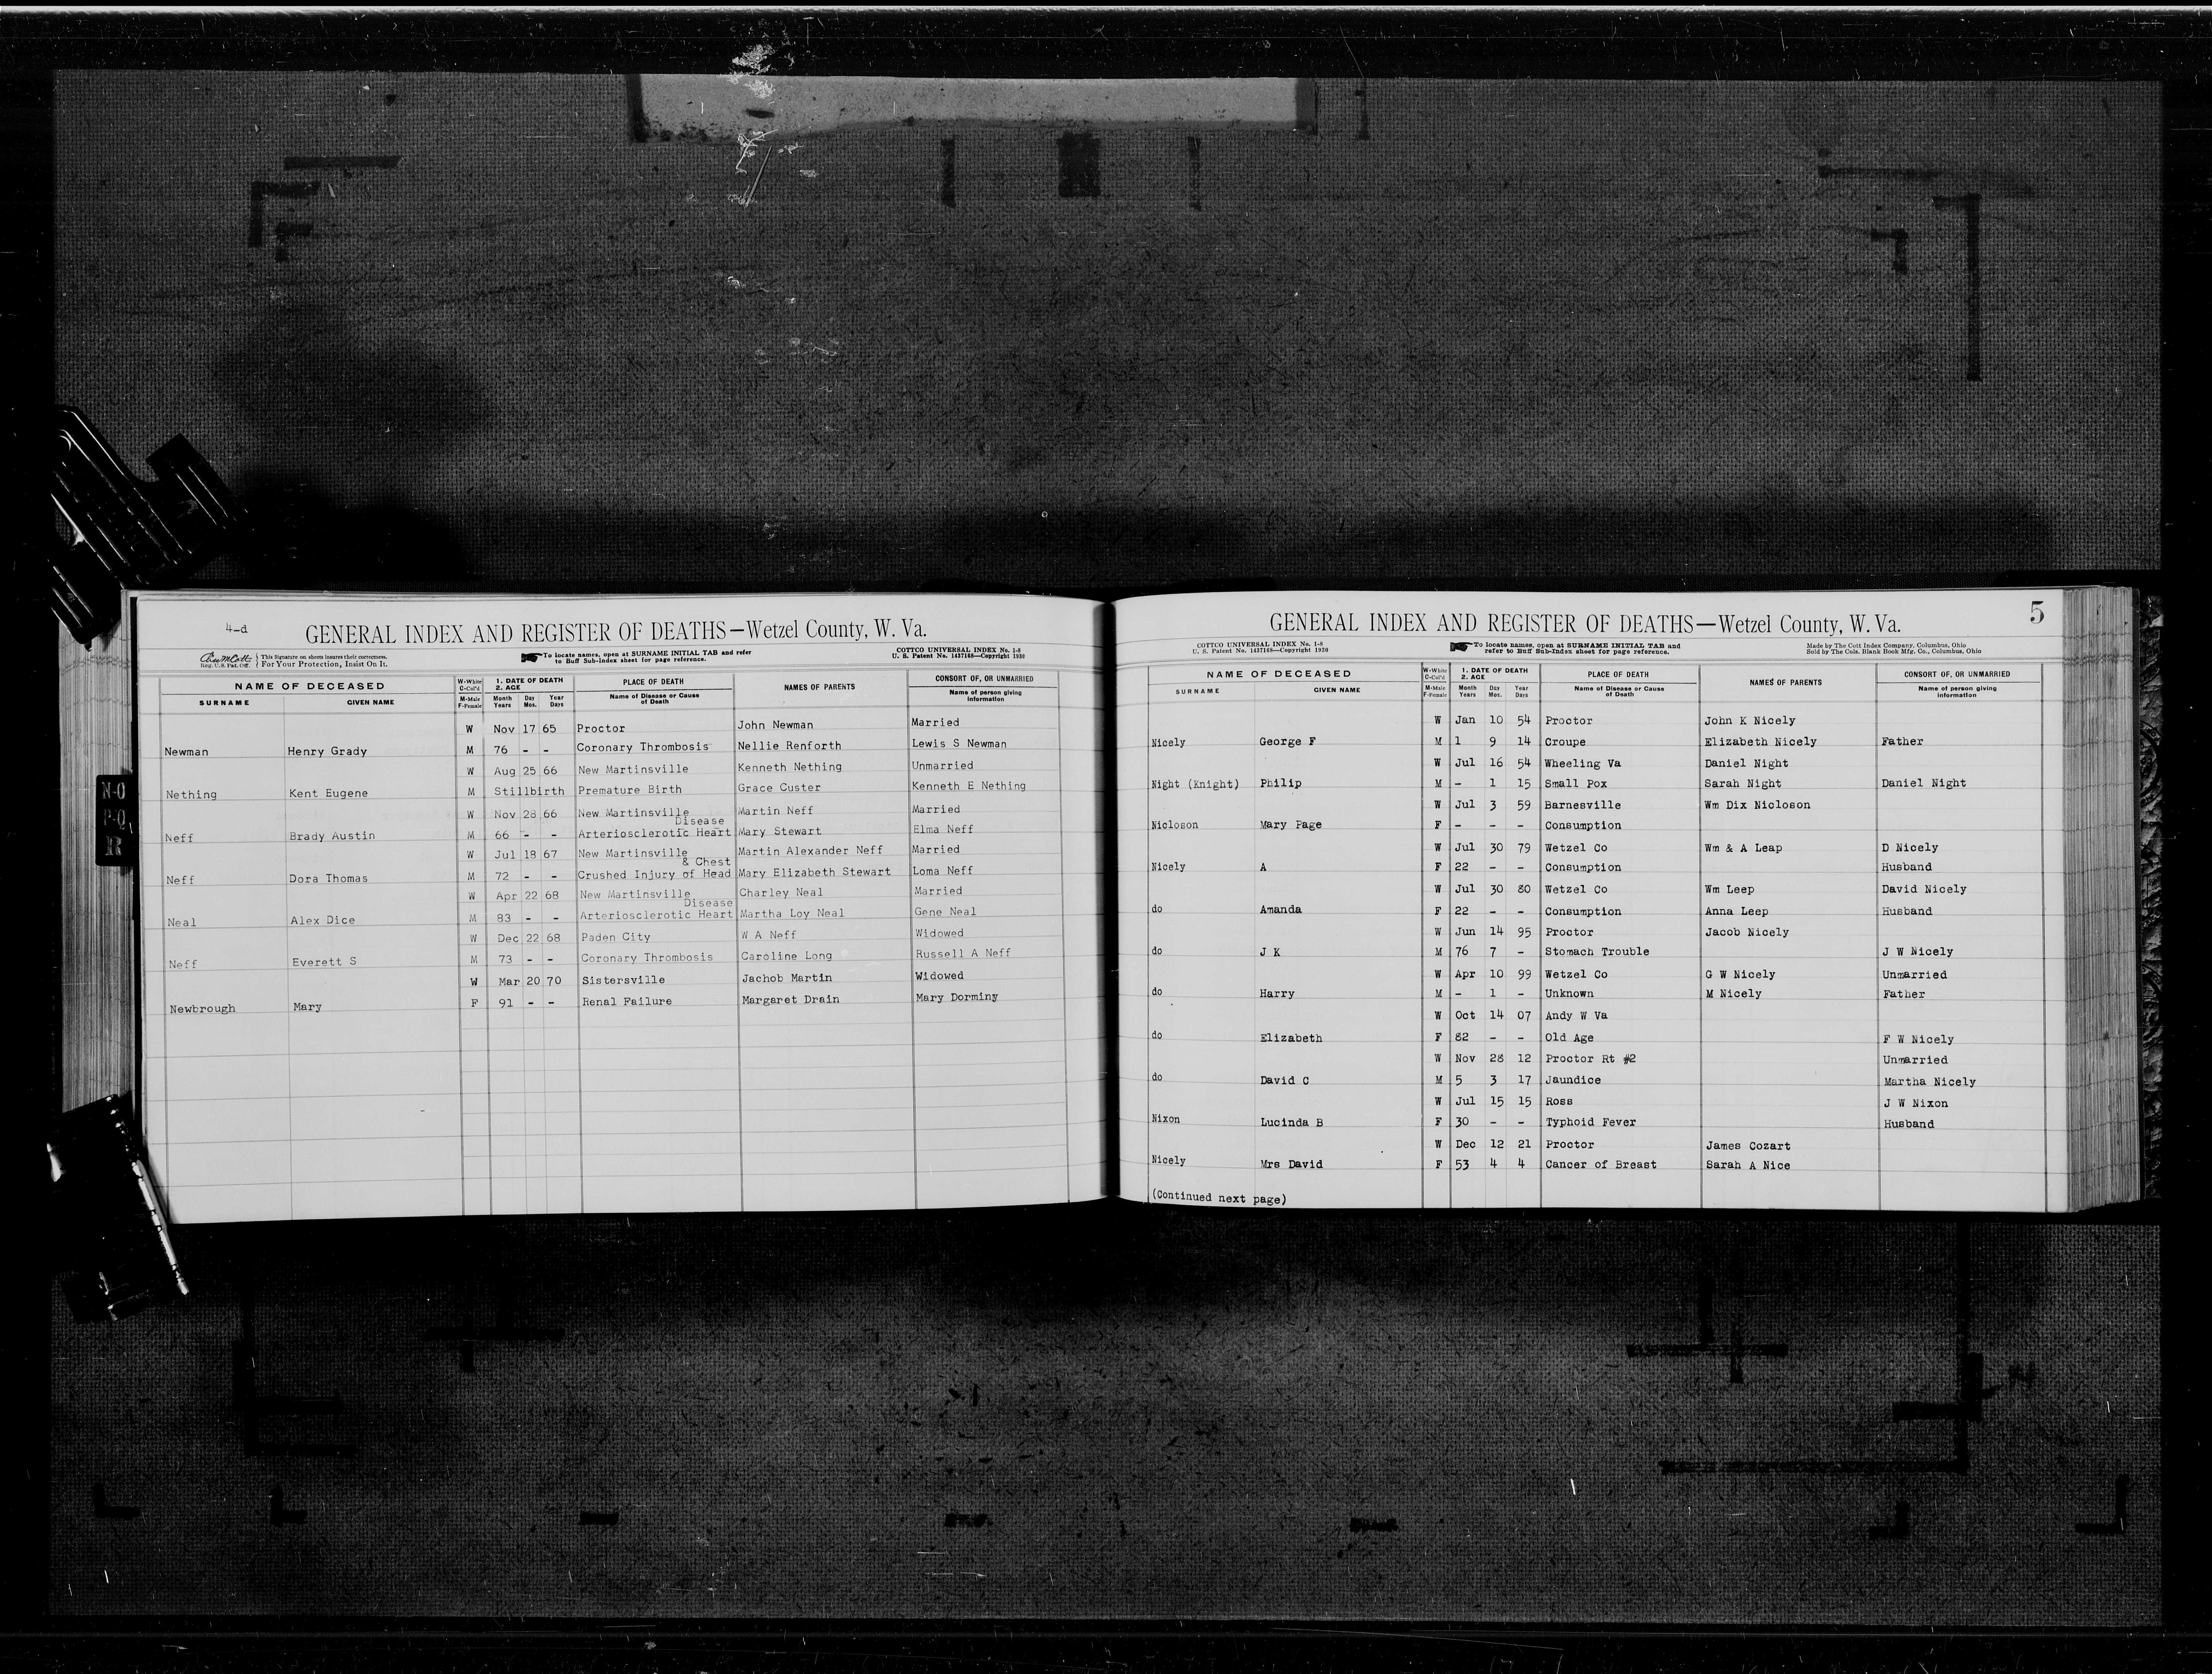 4-d
GENERAL INDEX AND REGISTER OF DEATHS—Wetzel County, W. Va.
Reg. U.S. Pat. Off.
This Signature on sheets insures their correctness.
For Your Protection, Insist On It.
To locate names, open at SURNAME INITIAL TAB and refer
to Buff Sub-Index sheet for page reference.
COTTCO UNIVERSAL INDEX No. 1-8
U. S. Patent No. 1437168—Copyright 1930
NAME OF DECEASED W-White C-Col'd 1. DATE OF DEATH 2. AGE PLACE OF DEATH NAMES OF PARENTS CONSORT OF, OR UNMARRIED
SURNAME GIVEN NAME M-Male F-Female Month Years Day Mos. Year Days Name of Disease or Cause of Death Name of person giving information
W Nov 17 65 Proctor John Newman Married
Newman Henry Grady M 76 - - Coronary Thrombosis Nellie Renforth Lewis S Newman
W Aug 25 66 New Martinsville Kenneth Nething Unmarried
Nething Kent Eugene M Stillbirth Premature Birth Grace Custer Kenneth E Nething
W Nov 28 66 New Martinsville Martin Neff Married
Disease
Neff Brady Austin M 66 - - Arteriosclerotic Heart Mary Stewart Elma Neff
W Jul 18 67 New Martinsville Martin Alexander Neff Married
& Chest
Neff Dora Thomas M 72 - - Crushed Injury of Head Mary Elizabeth Stewart Loma Neff
W Apr 22 68 New Martinsville Charley Neal Married
Disease
Neal Alex Dice M 83 - - Arteriosclerotic Heart Martha Loy Neal Gene Neal
W Dec 22 68 Paden City W A Neff Widowed
Neff Everett S M 73 - - Coronary Thrombosis Caroline Long Russell A Neff
W Mar 20 70 Sistersville Jachob Martin Widowed
Newbrough Mary F 91 - - Renal Failure Margaret Drain Mary Dorminy
N-O
P-Q
R
5
GENERAL INDEX AND REGISTER OF DEATHS—Wetzel County, W. Va.
COTTCO UNIVERSAL INDEX No. 1-8
U. S. Patent No. 1437168—Copyright 1930
To locate names, open at SURNAME INITIAL TAB and
refer to Buff Sub-Index sheet for page reference.
Made by The Cott Index Company, Columbus, Ohio
Sold by The Cols. Blank Book Mfg. Co., Columbus, Ohio
NAME OF DECEASED W-White C-Col'd 1. DATE OF DEATH 2. AGE PLACE OF DEATH NAMES OF PARENTS CONSORT OF, OR UNMARRIED
SURNAME GIVEN NAME M-Male F-Female Month Years Day Mos. Year Days Name of Disease or Cause of Death Name of person giving information
W Jan 10 54 Proctor John K Nicely
Nicely George F M 1 9 14 Croupe Elizabeth Nicely Father
W Jul 16 54 Wheeling Va Daniel Night
Night (Knight) Philip M - 1 15 Small Pox Sarah Night Daniel Night
W Jul 3 59 Barnesville Wm Dix Nicloson
Nicloson Mary Page F - - - Consumption
W Jul 30 79 Wetzel Co Wm & A Leap D Nicely
Nicely A F 22 - - Consumption Husband
W Jul 30 80 Wetzel Co Wm Leep David Nicely
do Amanda F 22 - - Consumption Anna Leep Husband
W Jun 14 95 Proctor Jacob Nicely
do J K M 76 7 - Stomach Trouble J W Nicely
W Apr 10 99 Wetzel Co G W Nicely Unmarried
do Harry M - 1 - Unknown M Nicely Father
W Oct 14 07 Andy W Va
do Elizabeth F 82 - - Old Age F W Nicely
W Nov 28 12 Proctor Rt #2 Unmarried
do David C M 5 3 17 Jaundice Martha Nicely
W Jul 15 15 Ross J W Nixon
Nixon Lucinda B F 30 - - Typhoid Fever Husband
W Dec 12 21 Proctor James Cozart
Nicely Mrs David F 53 4 4 Cancer of Breast Sarah A Nice
(Continued next page)